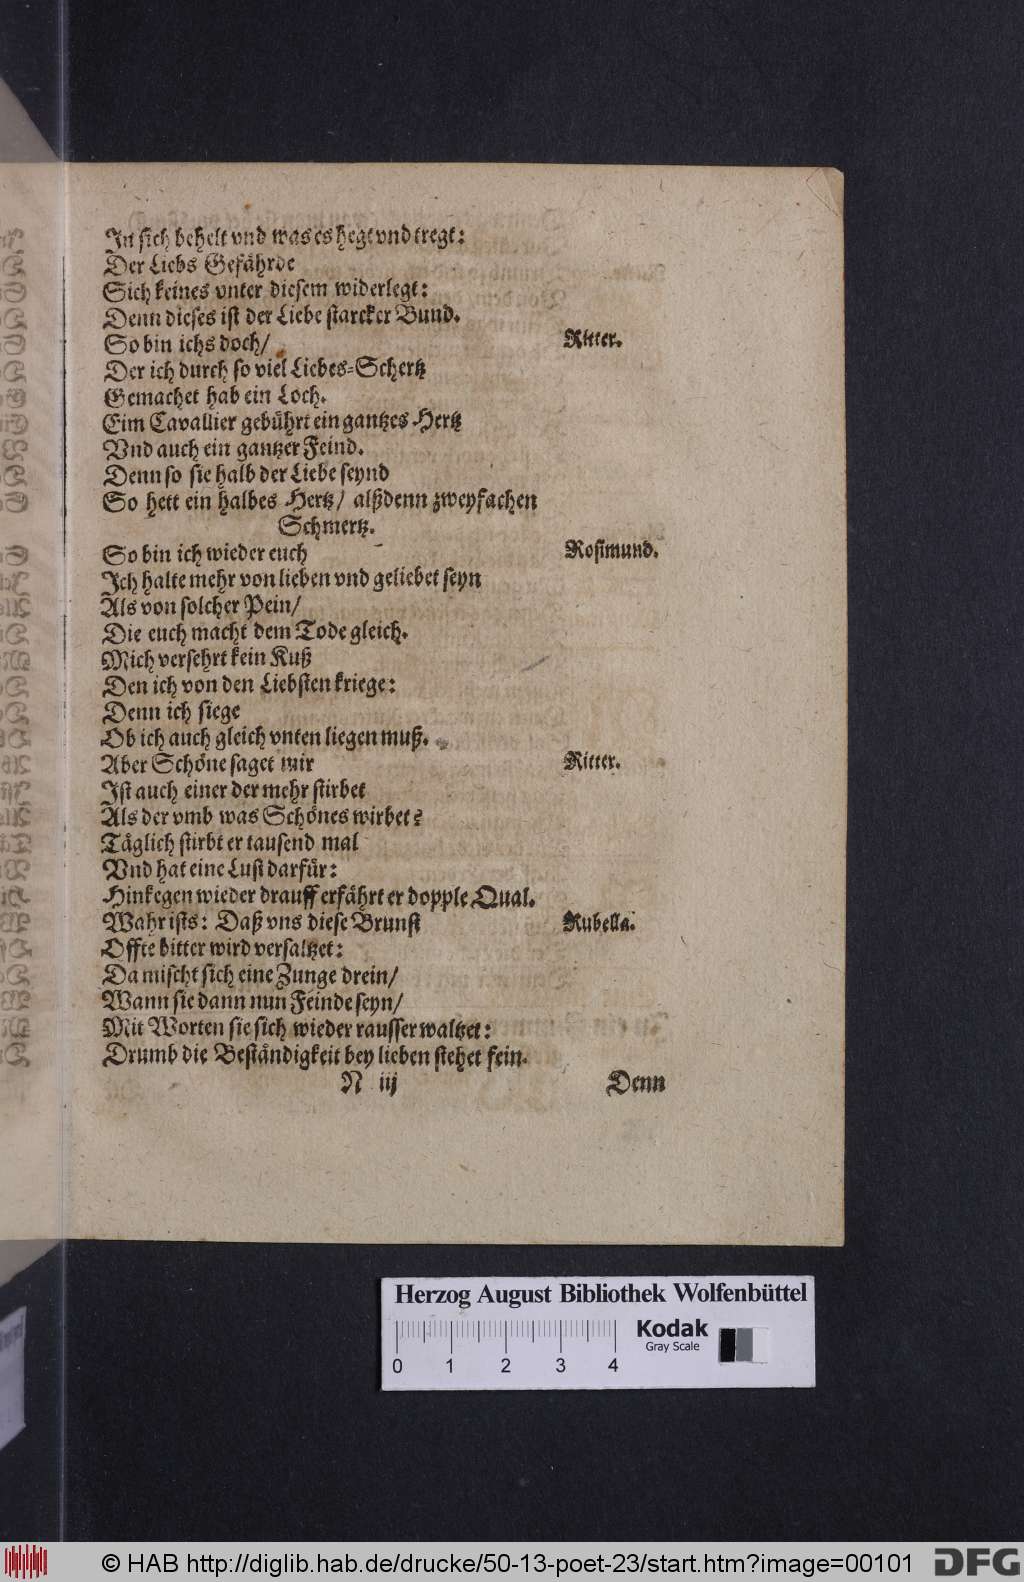 In sich behelt vnd was es hegt vnd tregt:
Der Liebs Gefährde
Sich keines vnter diesem widerlegt:
Denn dieses ist der Liebe starcker Bund.
So bin ichs doch/ Ritter.
Der ich durch so viel Liebes-Schertz
Gemachet hab ein Loch.
Eim Cavallier gebührt ein gantzes Hertz
Vnd auch ein gantzer Feind.
Denn so sie halb der Liebe seynd
So hett ein halbes Hertz/ alßdenn zweyfachen
Schmertz.
So bin ich wieder euch Rosimund.
Ich halte mehr von lieben vnd geliebet seyn
Als von solcher Pein/
Die euch macht dem Tode gleich.
Mich versehrt kein Kuß
Den ich von den Liebsten kriege:
Denn ich siege
Ob ich auch gleich vnten liegen muß.
Aber Schöne saget mir Ritter.
Ist auch einer der mehr stirbet
Als der vmb was Schönes wirbet?
Täglich stirbt er tausend mal
Vnd hat eine Lust darfür:
Hinkegen wieder drauff erfährt er dopple Qual.
Wahr ists: Daß vns diese Brunst Rubella.
Offte bitter wird versaltzet:
Da mischt sich eine Zunge drein/
Wann sie dann nun Feinde seyn/
Mit Worten sie sich wieder rausser waltzet:
Drumb die Beständigkeit bey lieben stehet fein.
N iij Denn
Herzog August Bibliothek Wolfenbüttel
Kodak
Gray Scale
0 1 2 3 4
© HAB http://diglib.hab.de/drucke/50-13-poet-23/start.htm?image=00101 DFG